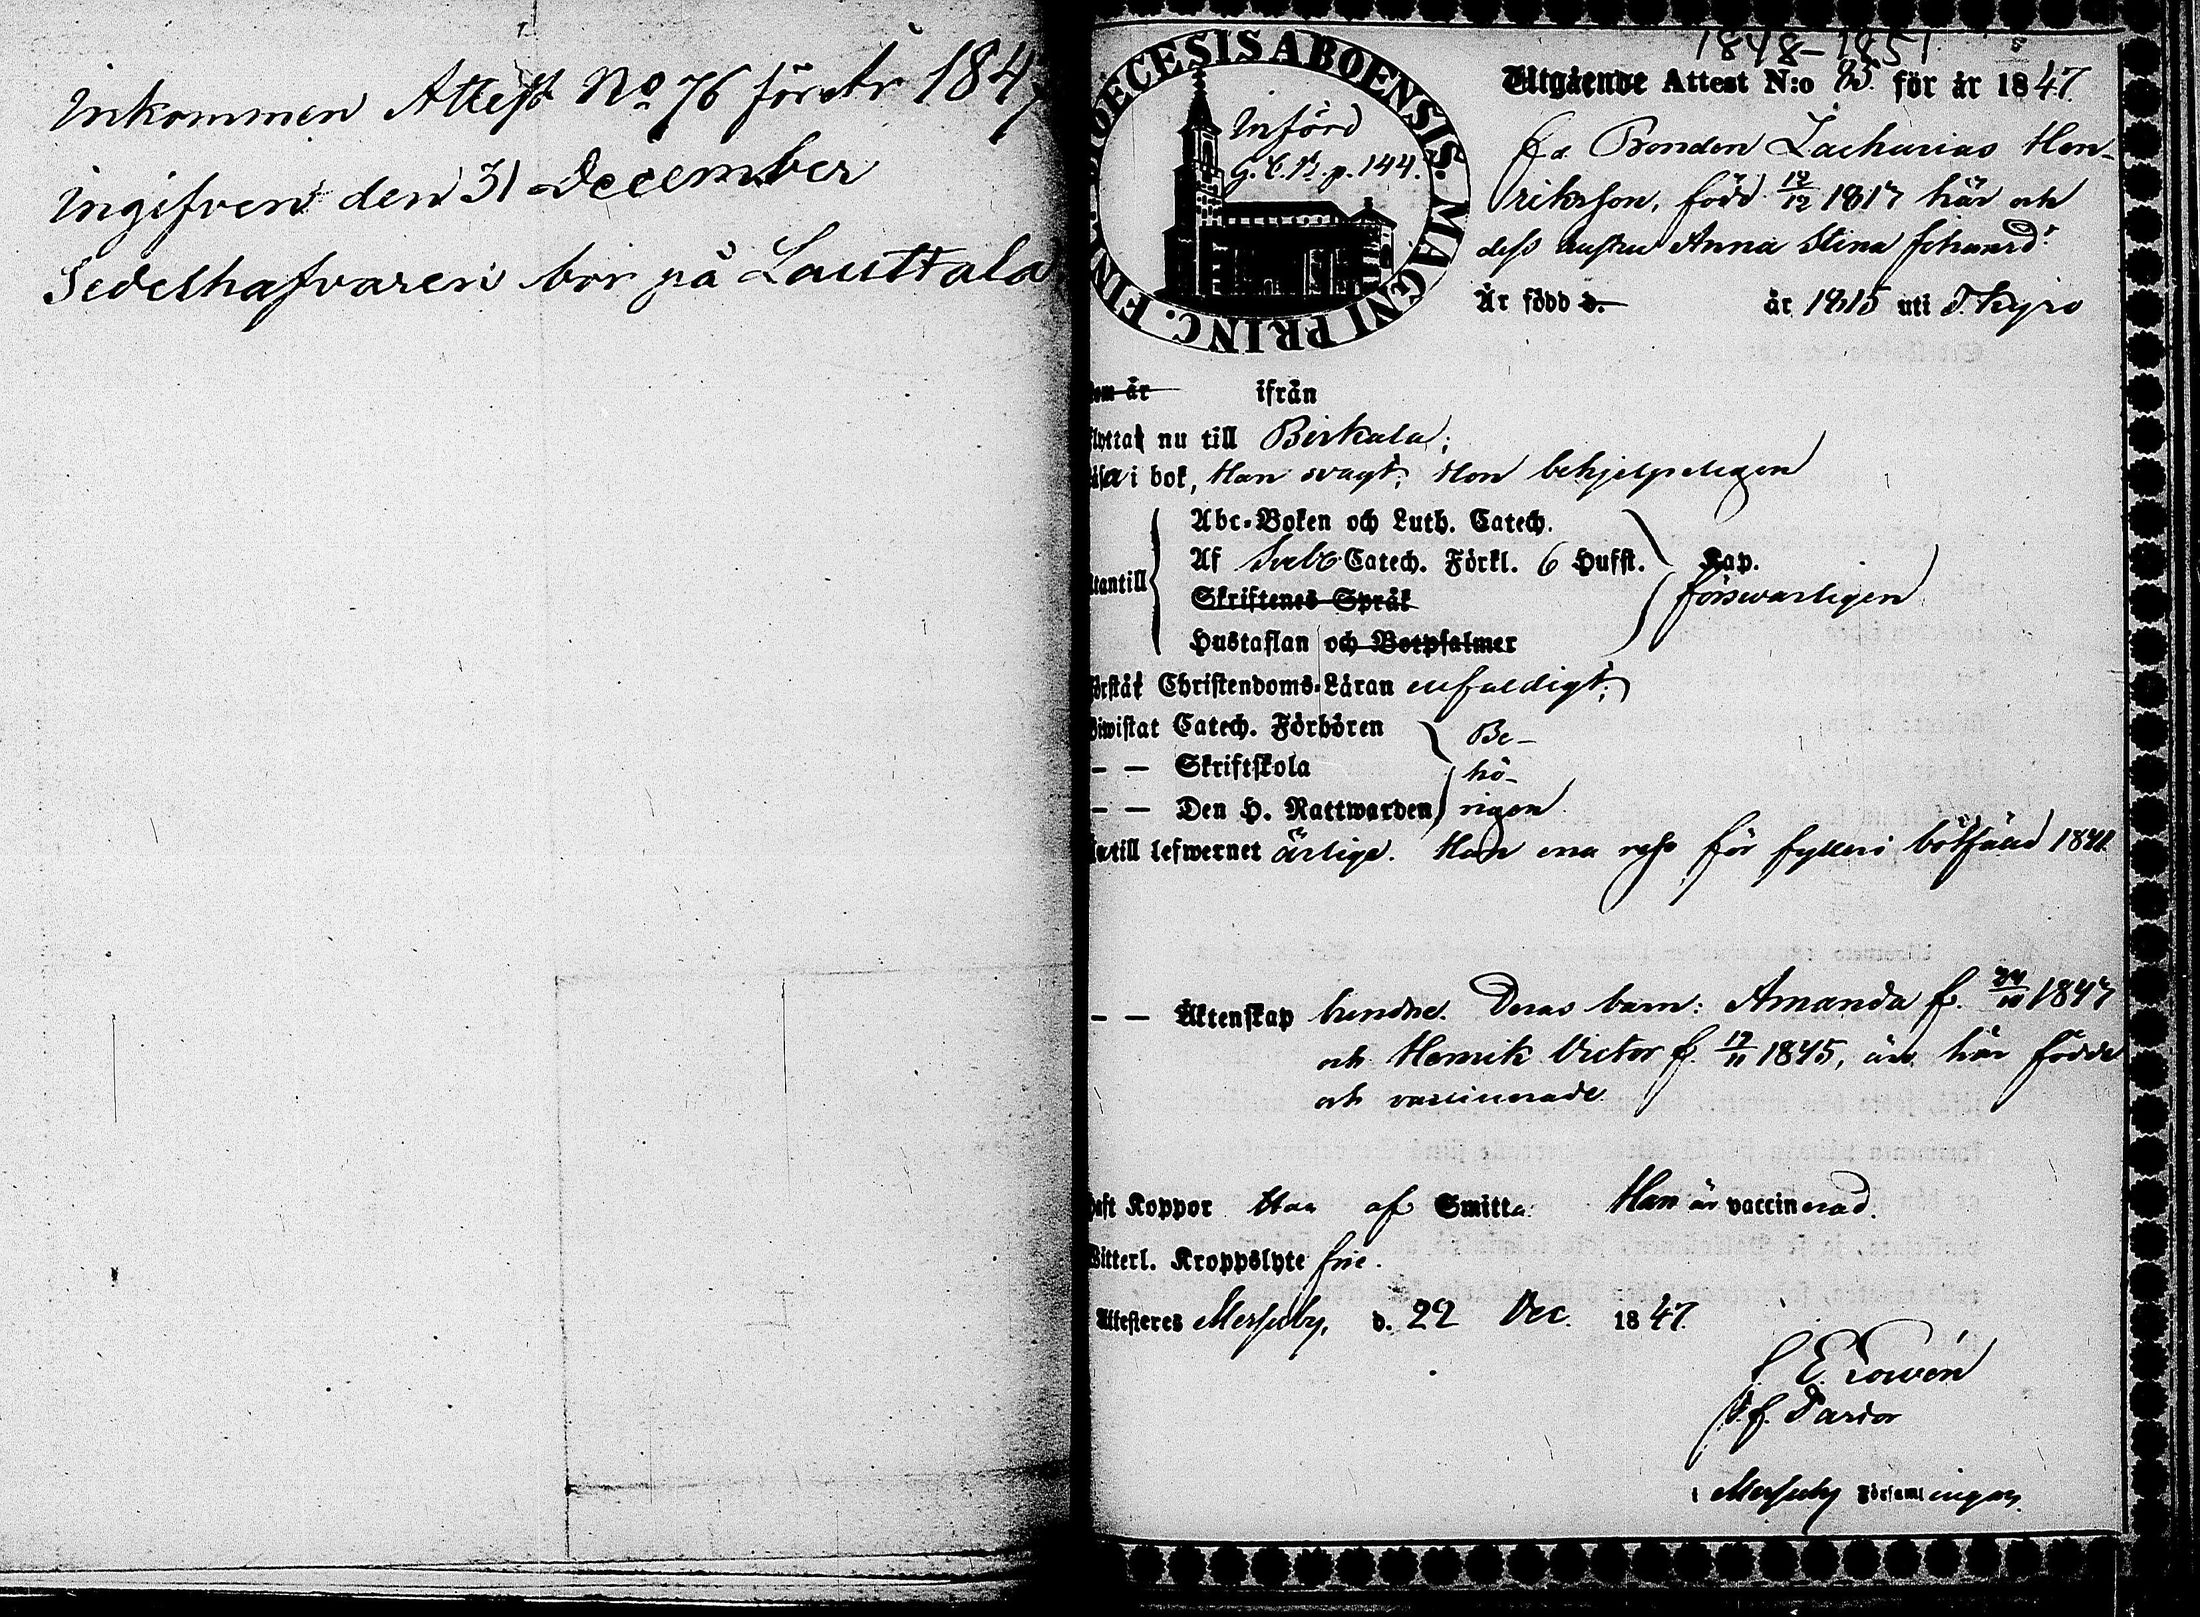 Inkommen Attest No 76 för År 1847
Ingifven den 31 December
Sedelhafvaren bor på Lauttala
1848-1851
DIOECESIS ABOENSIS. MAGNI PRINC. FIN
Införd
p. 144.
Utgående Attest N:o för år 1847.
f.d. Bonden Zacharias Hen-
riksson, född 19/12 1817 här och
dess hustru Anna Stina Johansd:r
Är född d. år 1815 uti T. Kyro
som är ifrån
flyttat nu till Birkala;
läsa i bok, Han svagt; Hon behjelpeligen
Abc-Boken och Luth. Catech.
Af Sveb Catech. Förkl. 6 Hufst. Kap.
utantill försvarligen
Skriftenes Språk
Hustaflan och Botpsalmer
Förstå Christendoms-Läran enfaldigt;
Biwistat Catech. Förhören Be-
— — Skriftskola hö-
— — Den H. Nattwarden rigen
till lefwernet ärlige. Han ena resa för fylleri bötfälld 1841.
— — Äktenskap bundne. Deras barn: Amanda f. 1847
och Henrik Victor f. 19/11 1845, äro här födde
och vaccinerade
Haft Koppor Hon af Smitta. Han är vaccinerad.
Witterl. Kroppslyte frie.
Attesteres Messuby, d. 22 Dec. 1847.
t.f. Pastor
i Messuby Församlingen